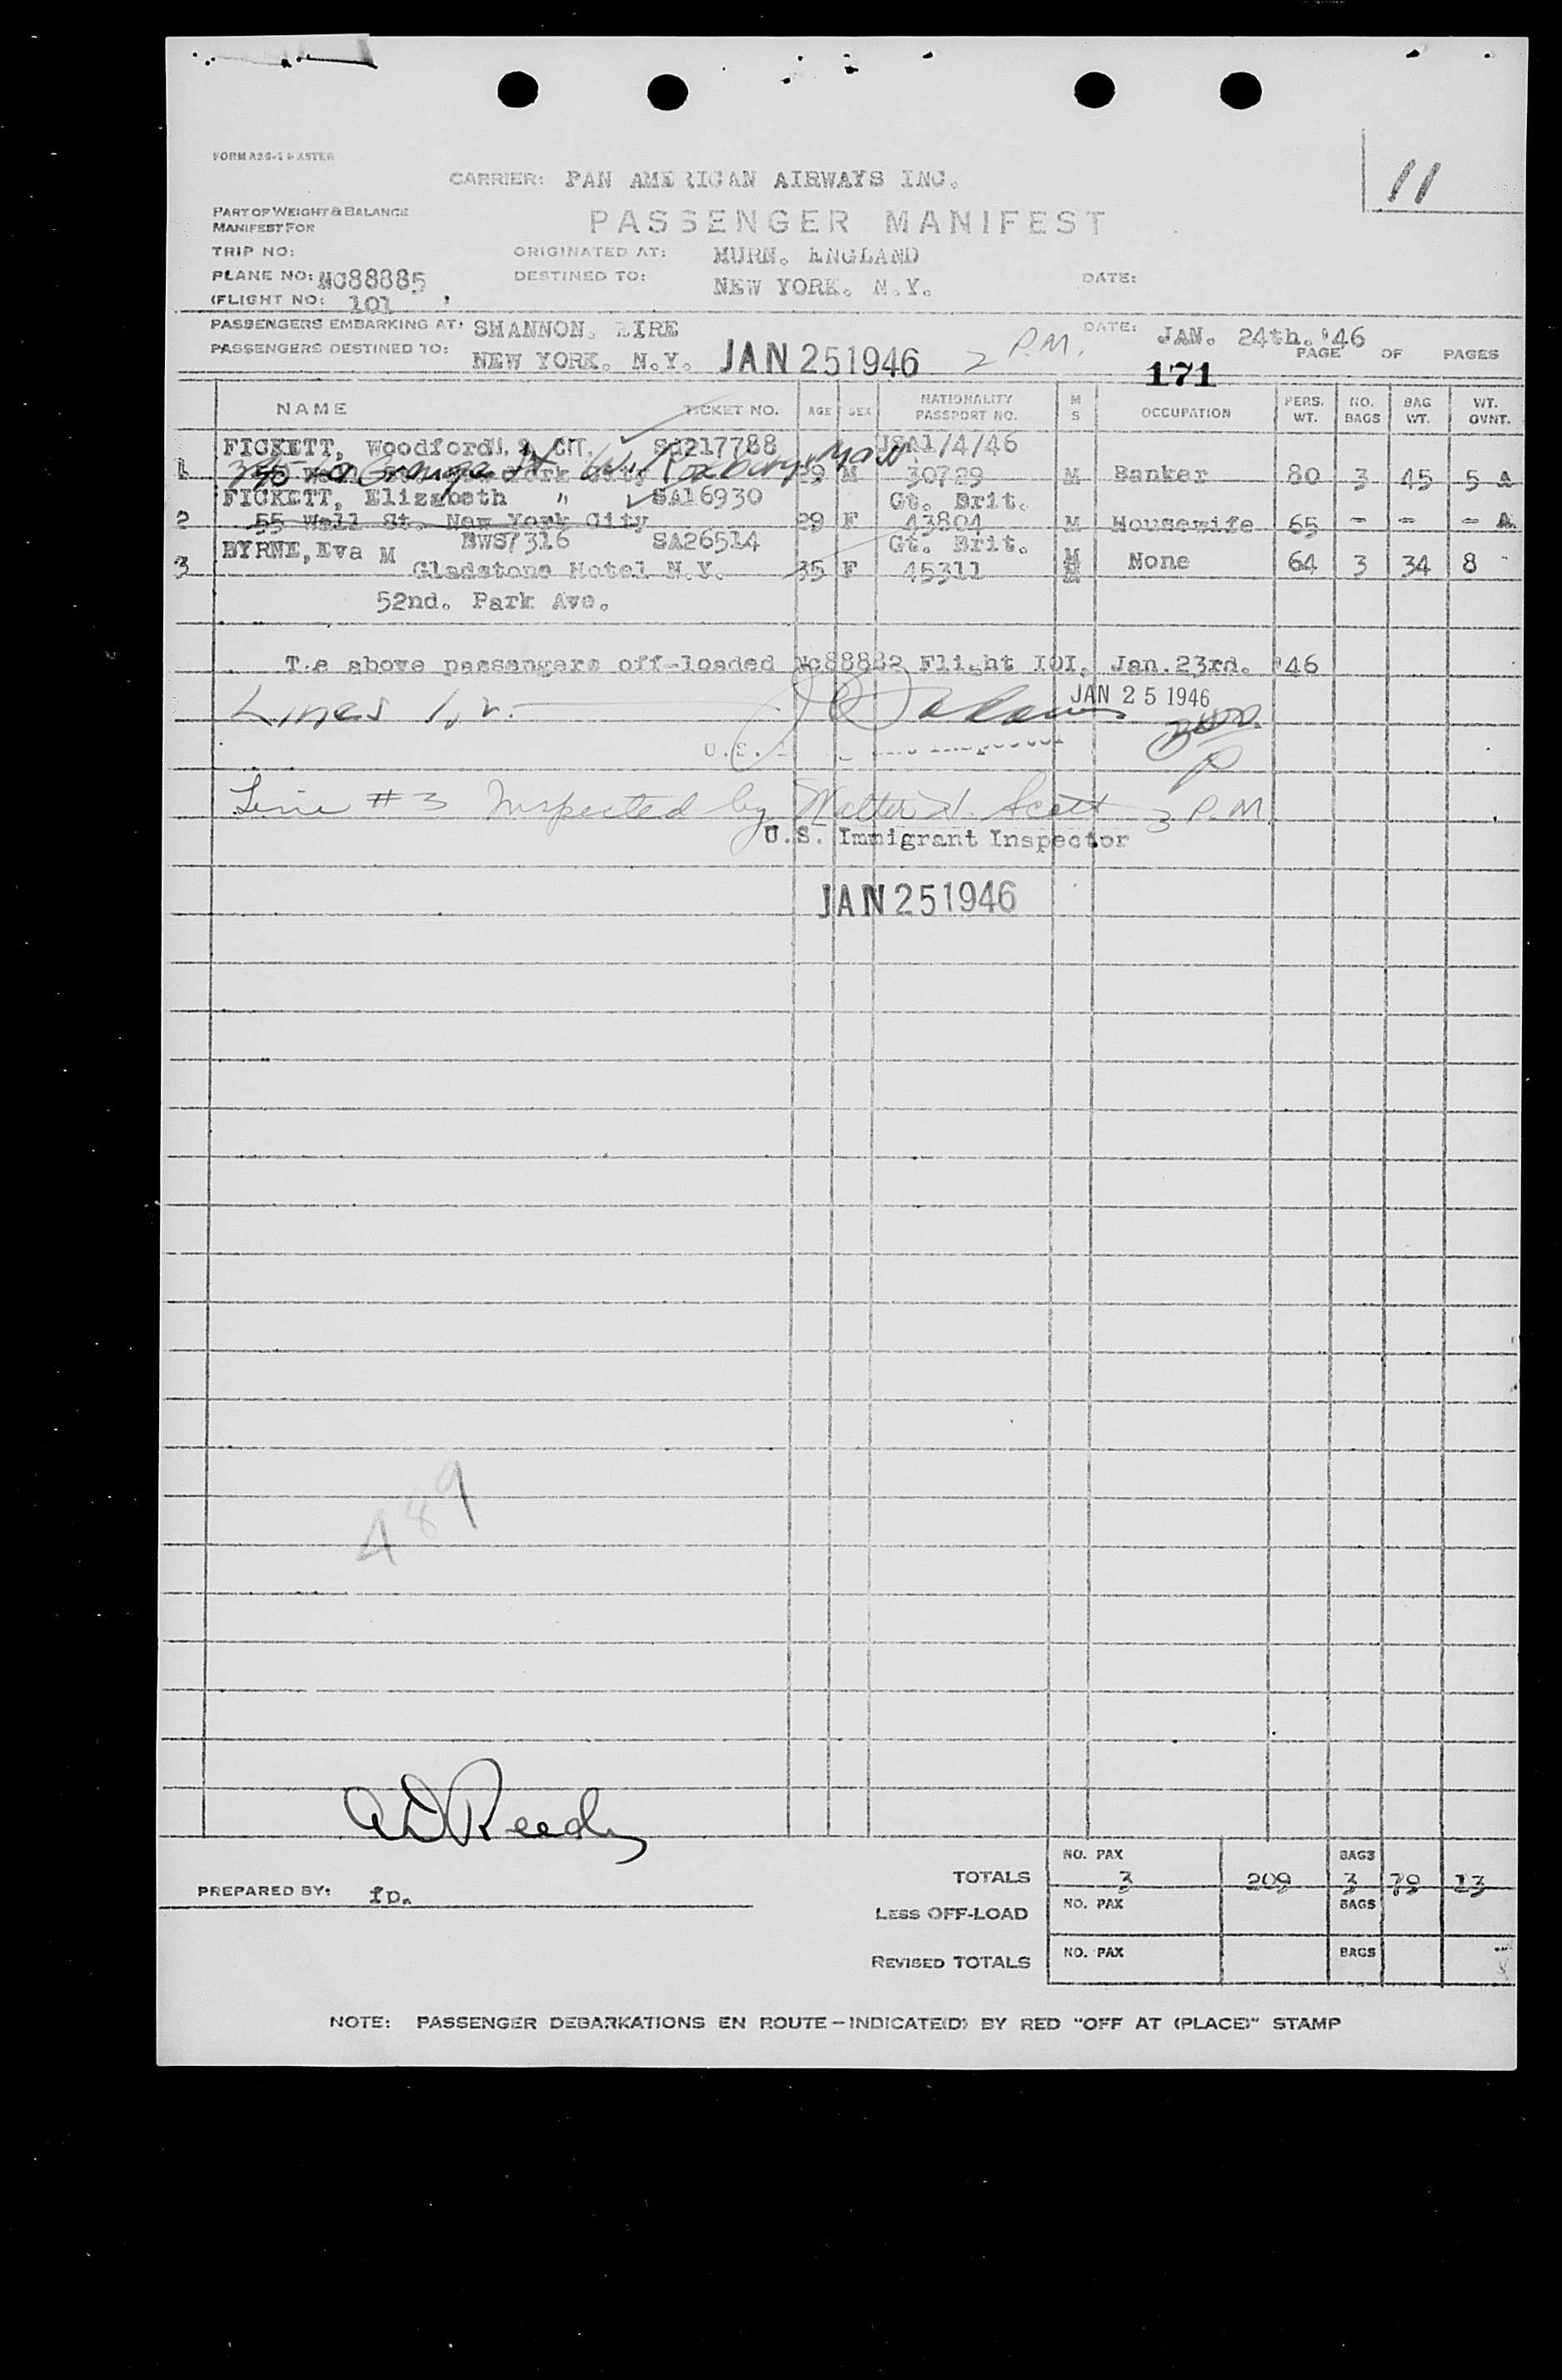 11
FORM A26-1 MASTER
CARRIER: PAN AMERICAN AIRWAYS INC.
PART OF WEIGHT & BALANCE
MANIFEST FOR
PASSENGER MANIFEST
TRIP NO: ORIGINATED AT: HURN. ENGLAND
PLANE NO: NC88885 DESTINED TO: NEW YORK. N.Y. DATE:
(FLIGHT NO: 101
PASSENGERS EMBARKING AT: SHANNON. EIRE DATE: JAN. 24th. '46
PASSENGERS DESTINED TO: NEW YORK. N.Y. JAN 25 1946 2 P.M. PAGE OF PAGES
171
NAME TICKET NO. AGE SEX NATIONALITY PASSPORT NO. M S OCCUPATION PERS. WT. NO. BAGS BAG WT. WT. OVNT.
FICKETT, Woodford U.S. CIT. SA217788 USA1/4/46
1 St. W. Roxbury Mass 29 M 30729 M Banker 80 3 45 5 A
FICKETT, Elizabeth " SA16930 Gt. Brit.
2 55 Wall St. New York City 29 F 43804 M Housewife 65 - - - A
BYRNE, Eva M BWS7316 SA26514 Gt. Brit.
3 Gladstone Hotel N.Y. 35 F 45311 M None 64 3 34 8
52nd. Park Ave.
T.e above passengers off-loaded Nc88882 Flight IOI, Jan.23rd. '46
Lines 1, 2. JAN 25 1946
U.S. Inspector
Line #3 Inspected by Walter H. Scott 3 P.M.
U.S. Immigrant Inspector
JAN 25 1946
489
A D Reedy
PREPARED BY: fp.
TOTALS NO. PAX 3 209 BAGS 3 79 13
LESS OFF-LOAD NO. PAX BAGS
REVISED TOTALS NO. PAX BAGS
NOTE: PASSENGER DEBARKATIONS EN ROUTE—INDICATE(D) BY RED "OFF AT (PLACE)" STAMP